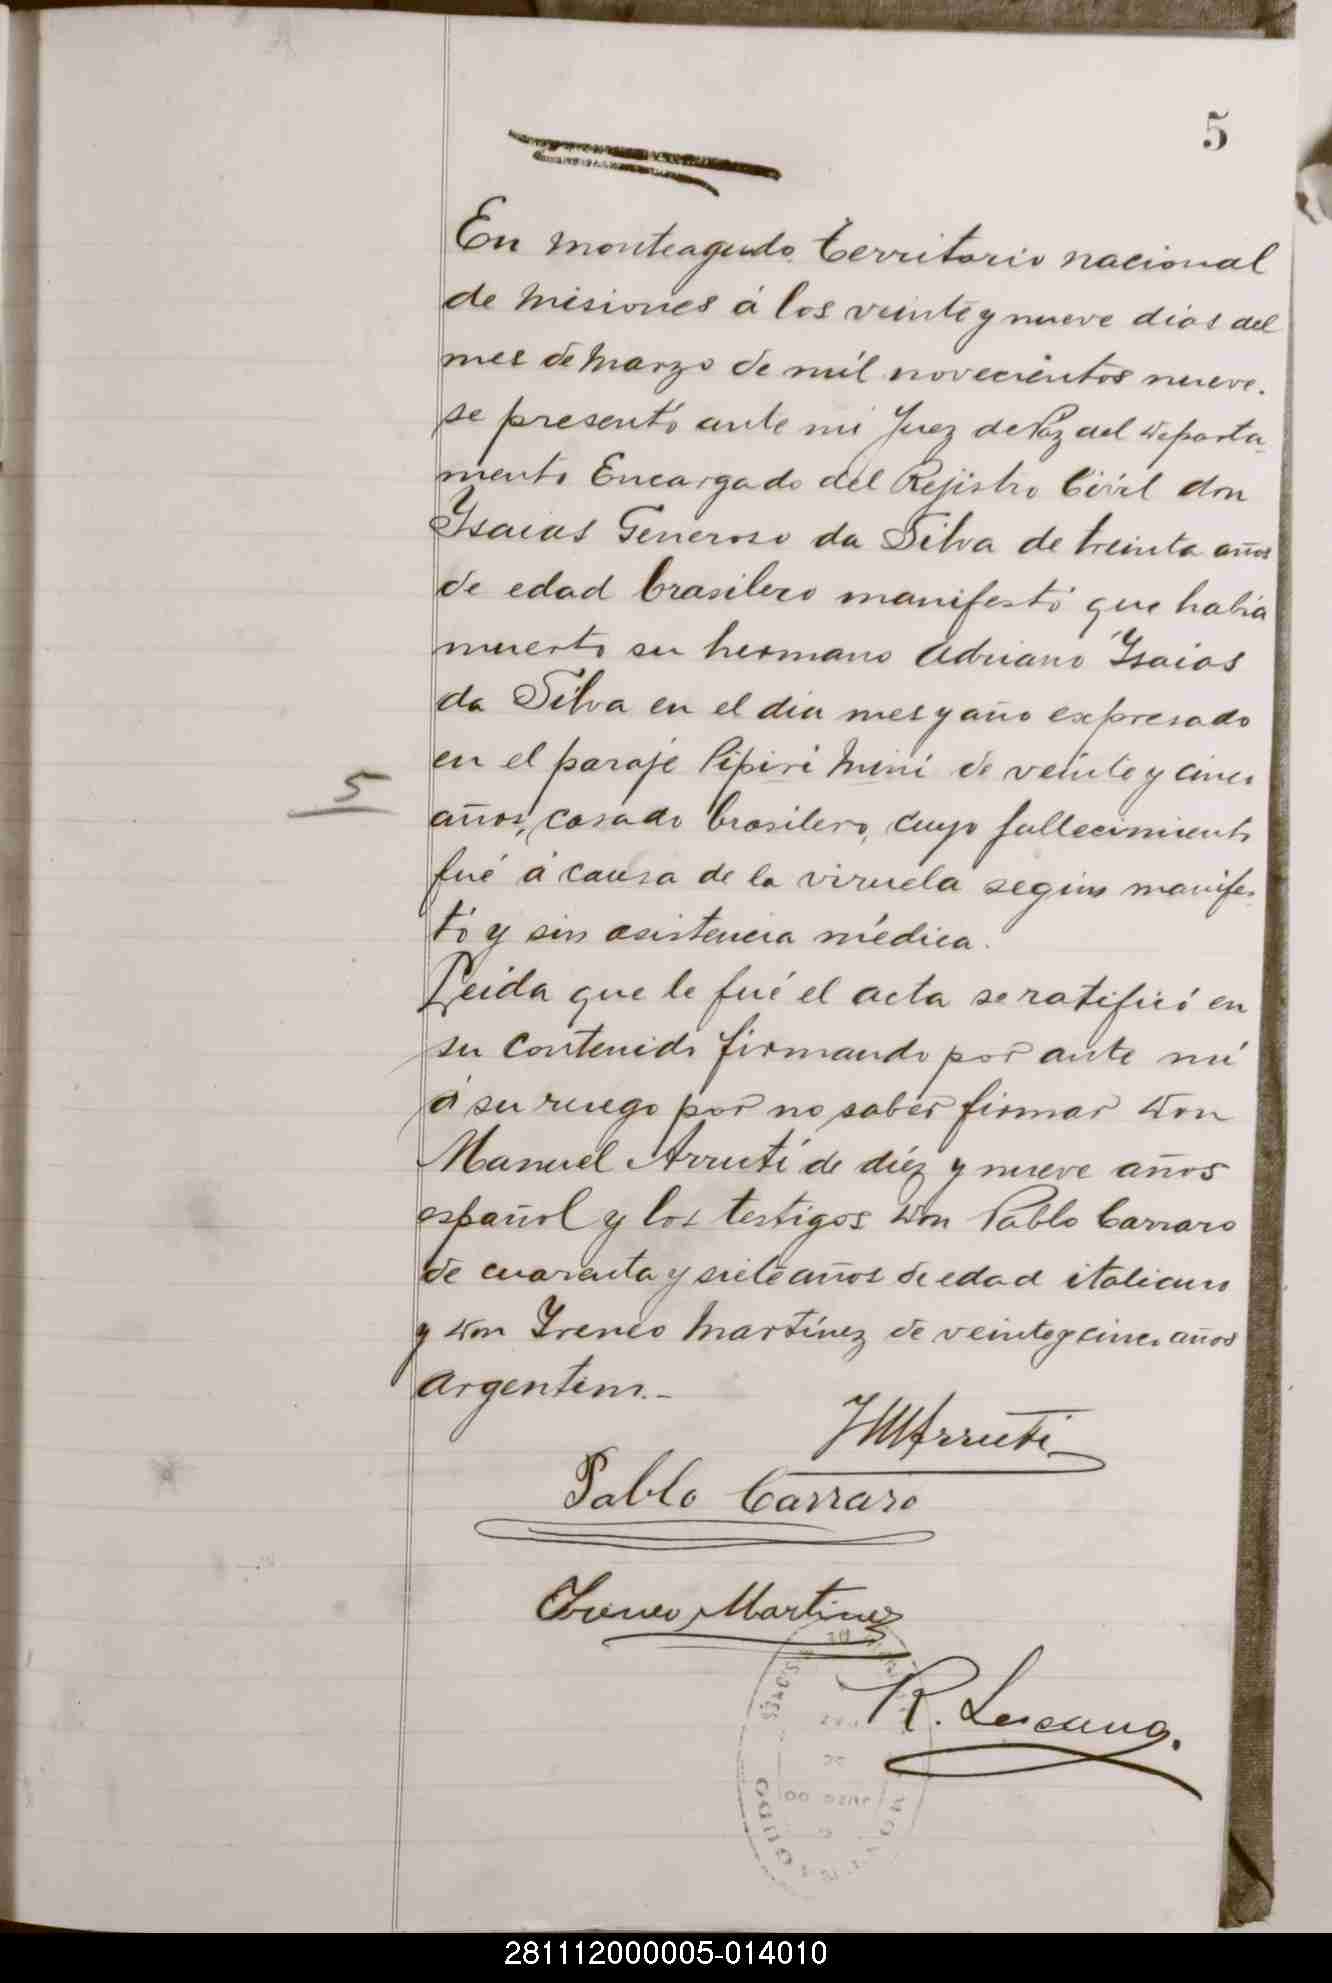 5
En Monteagudo Territorio nacional
de Misiones á los veinte y nueve dias del
mes de Marzo de mil novecientos nueve.
se presentó ante mi Juez de Paz del Departa-
mento Encargado del Rejistro Civil don
Isaias Generoso da Silva de treinta años
de edad brasilero manifestó que habia
muerto su hermano Adriano Isaias
da Silva en el dia mes y año expresado
en el paraje Pipiri Mini de veinte y cinco
5
años, casado brasilero, cuyo fallecimiento
fué á causa de la viruela segun manifes-
tó y sin asistencia médica.
Leida que le fué el acta se ratificó en
su contenido firmando por ante mi
á su ruego por no saber firmar Don
Manuel Arruti de diéz y nueve años
español y los testigos Don Pablo Carraro
de cuarenta y siete años de edad italiano
y Don Ireneo Martínez de veinte y cinco años
argentino.-
JMArruti
Pablo Carraro
Ireneo Martinez
R. Lescano.
281112000005-014010